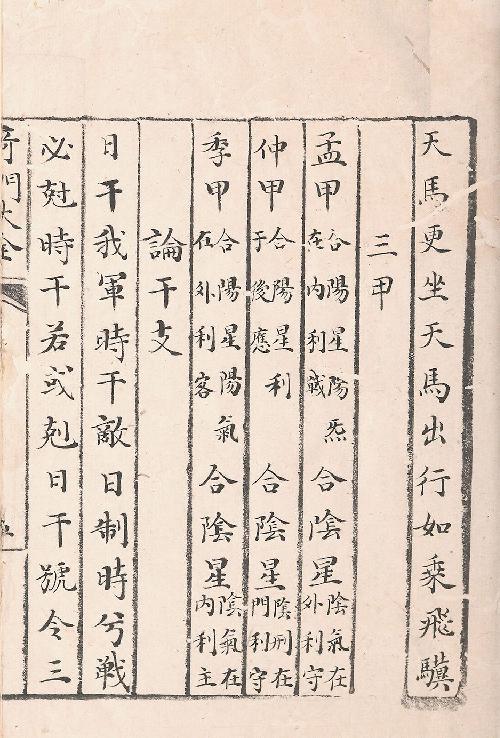 天馬更坐天馬出行如乘飛驥
三甲
孟甲合陽星陽炁在內利戰合陰星陰氣在外利守
仲甲合陽星利于後應合陰星陰刑在門利守
季甲合陽星陽氣在外利客合陰星陰氣在內利主
論干支
日干我軍時干敵日制時兮戰
必尅時干若或剋日干號令三
奇門大全